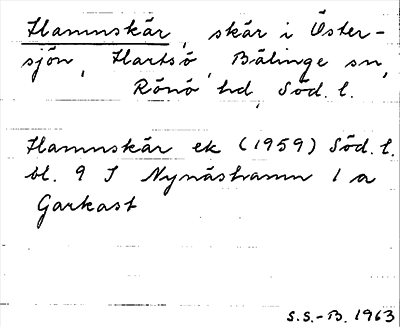 Hamnskär, skär i Öster-
sjön, Hartsö, Bälinge sn,
Rönö hd, Söd. l.
Hamnskär ek (1959) Söd. l.
bl. 9 J Nynäshamn 1 a
Garkast
S.S.-B. 1963